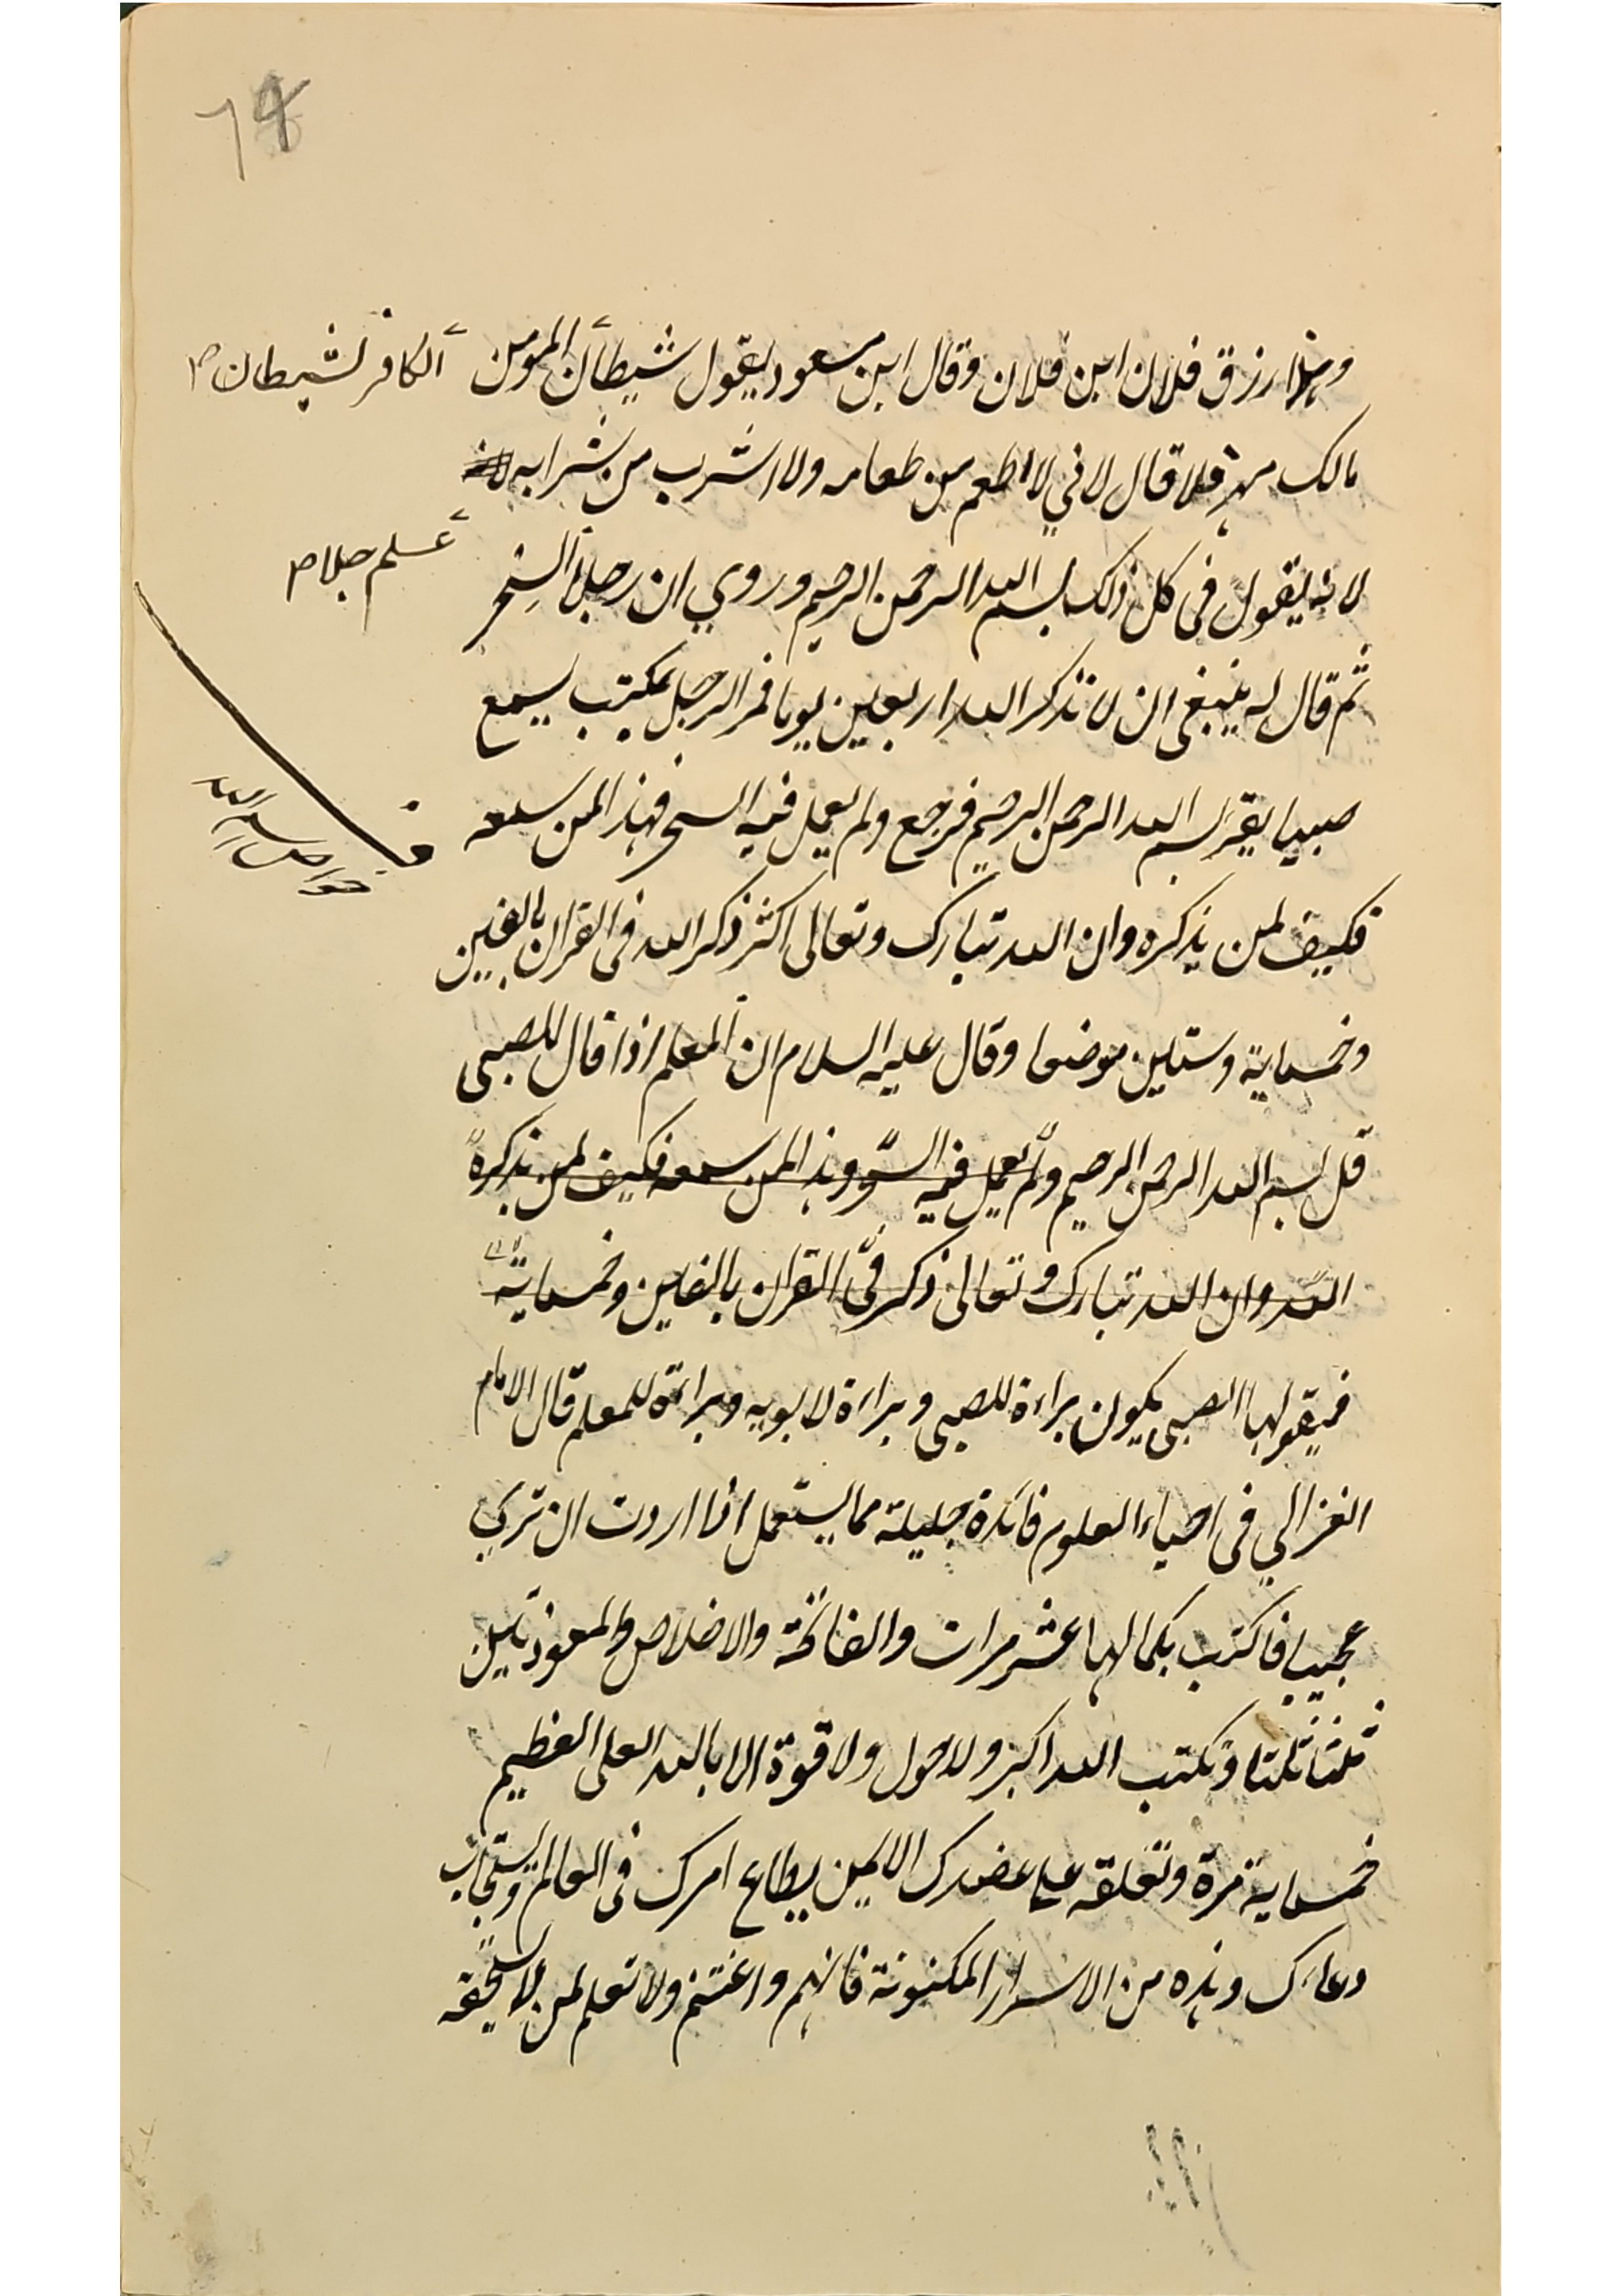 ٦٩
وهذا رزق فلان ابن فلان وقال ابن مسعود يقول شيطان المومن
الكافر لشيطان صح
مالك مهزولا قال لاني لا اطعم من طعامه ولا اشرب من شرابه
علم جلا صح
لانه يقول في كل ذلك بسم الله الرحمن الرحيم وروي ان رجلا السحر
ثم قال له ينبغى ان لا تذكر الله اربعين يوما فمر الرجل بمكتب يسمع
صبيا يقرا بسم الله الرحمن الرحيم فرجع ولم يعمل فيه السحر فهذا لمن سمعه
خواص بسم الله
فكيف لمن يذكره وان الله تبارك وتعالى اكثر ذكر الله فى القران بالفين
وخمسماية وستين موضعا وقال عليه السلام ان المعلم اذا قال للصبى
قل بسم الله الرحمن الرحيم ولم يعمل فيه السحر وهذا لمن سمعه فكيف لمن يذكره
الله وان الله تبارك وتعالى ذكر فى القران بالفين وخمسماية
فيقولها الصبى يكون براءة للصبى وبراءة لابويه وبراءة للمعلم قال الامام
الغزالي فى احياء العلوم فائدة جليلة مما يستعمل اذا اردت ان تري
عجيبا فاكتب بكمالها عشر مرات والفاتحة والاخلاص والمعوذتين
ثلثا ثلثا وتكتب الله اكبر ولا حول ولا قوة الا بالله العلى العظيم
خمسماية مرة وتعلقه على عضدك الايمن يطاع امرك فى العالم ويستجاب
دعاءك وهذه من الاسرار المكنونة فافهم واغتنم ولا تعلم لمن لا يستحقه